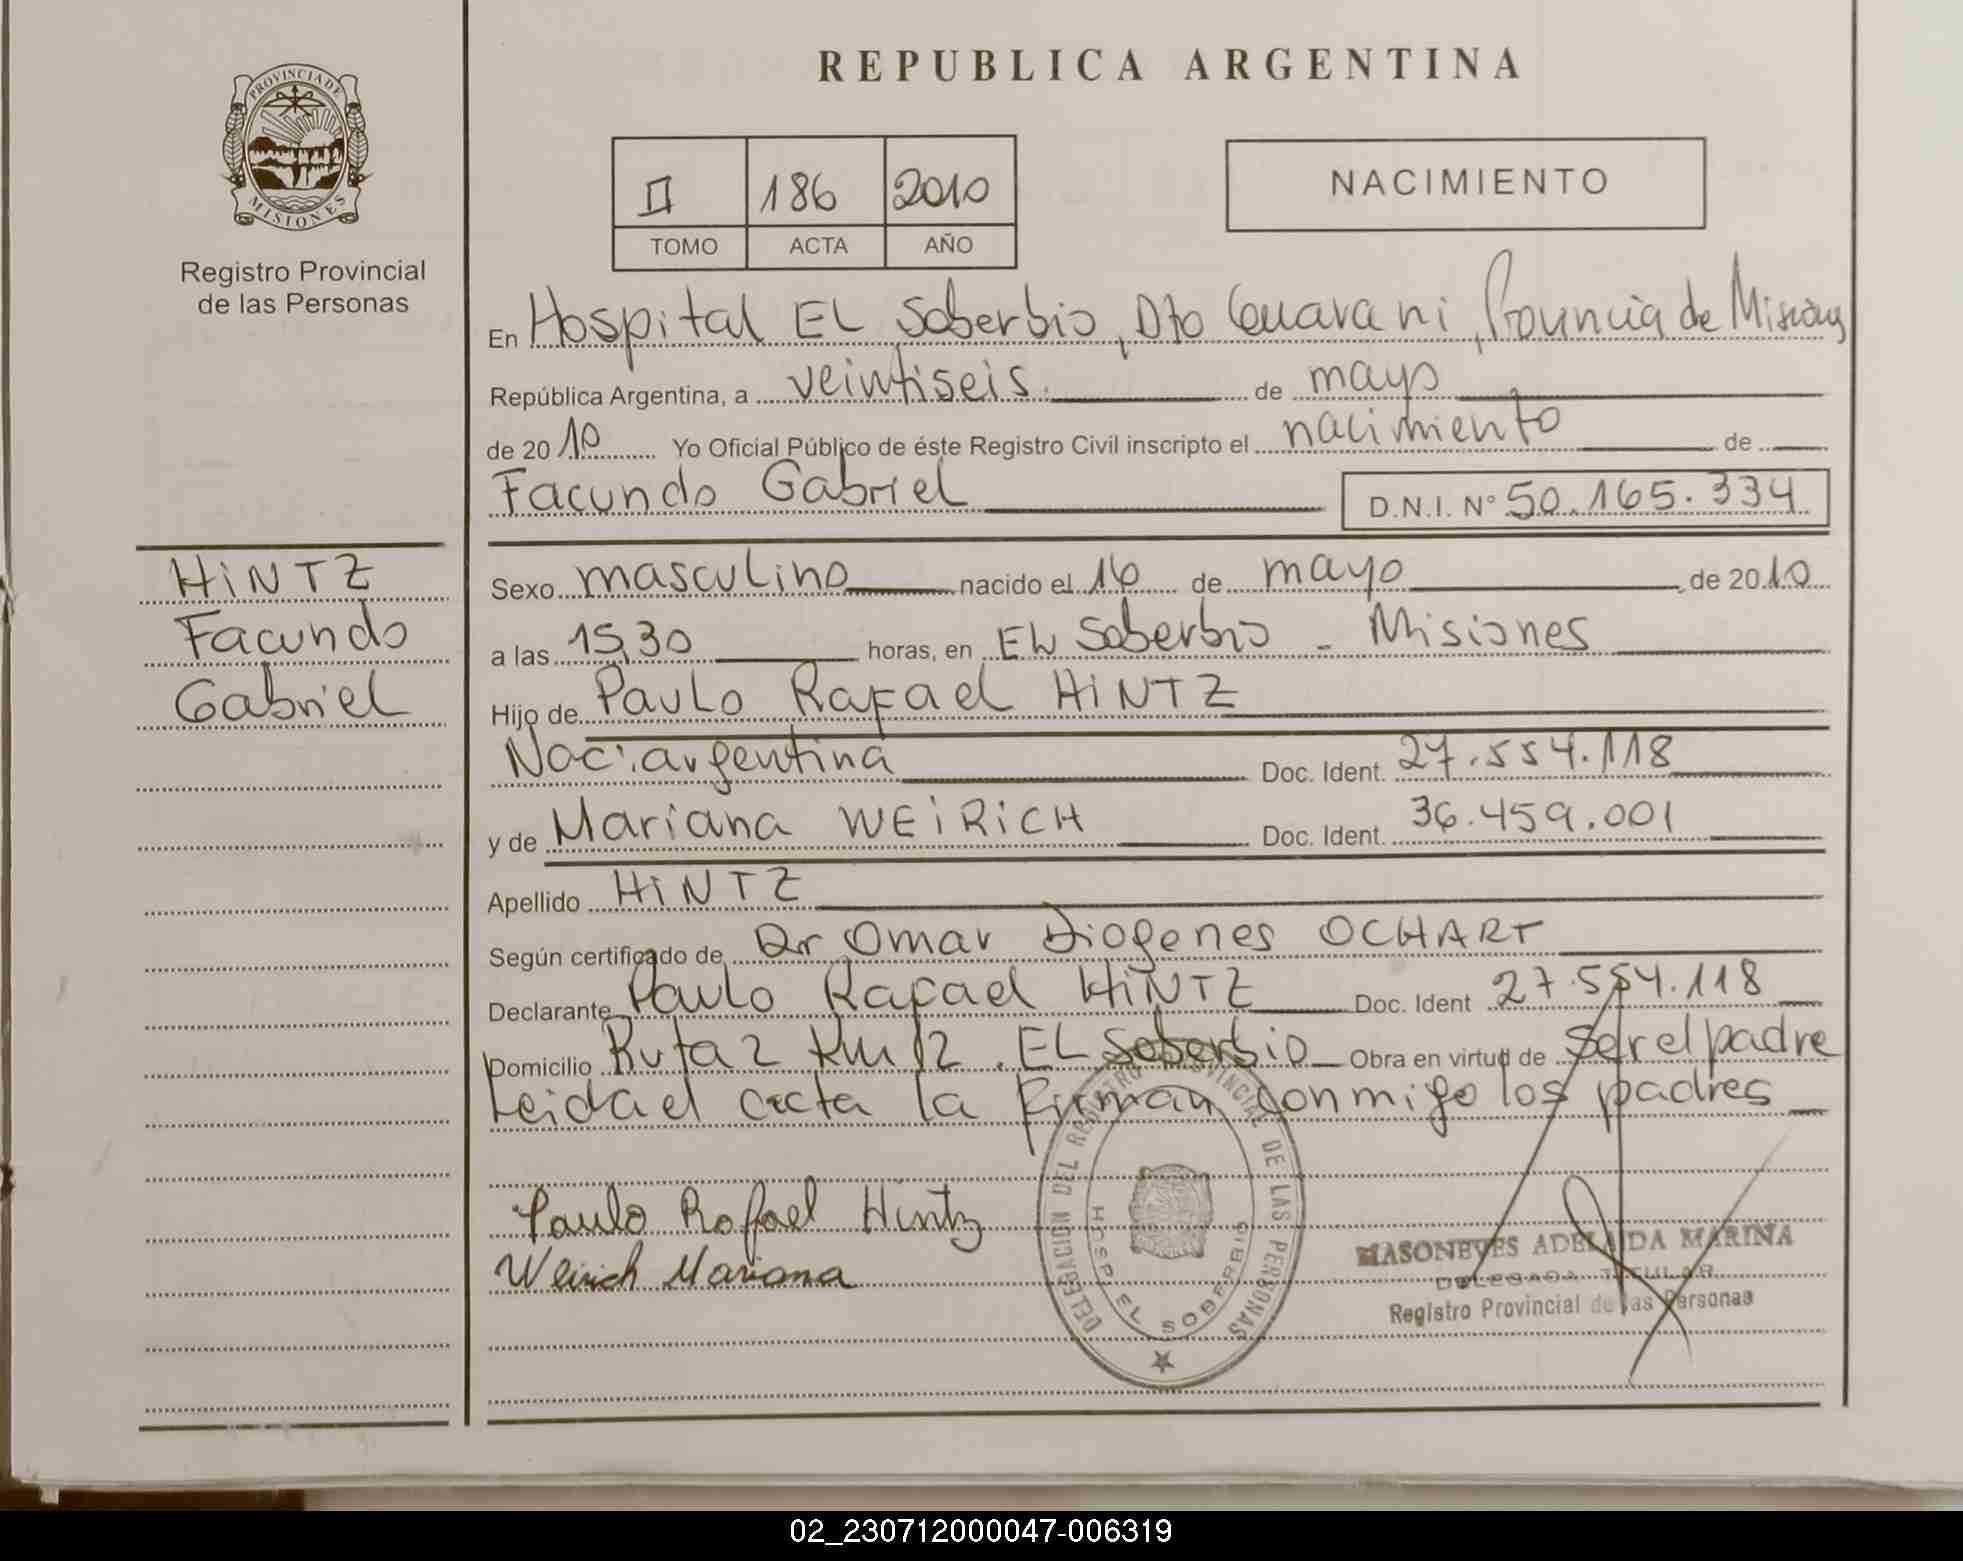 PROVINCIA DE
MISIONES
Registro Provincial
de las Personas
REPUBLICA ARGENTINA
II 186 2010
TOMO ACTA AÑO
NACIMIENTO
En Hospital EL Soberbio, Dto Guarani, Provincia de Misiones
República Argentina, a veintiseis. de mayo
de 2010 Yo Oficial Público de éste Registro Civil inscripto el nacimiento de
Facundo Gabriel D.N.I. N° 50.165.334
HiNTZ
Facundo
Gabriel
Sexo masculino nacido el 16 de mayo de 2010
a las 15,30 horas, en EL Soberbio - Misiones
Hijo de PauLo Rafael HiNTZ
Nac: argentina Doc. Ident. 27.554.118
y de Mariana WEiRiCH Doc. Ident. 36.459.001
Apellido HiNTZ
Según certificado de Dr Omar Diogenes OCHART
Declarante PauLo Rafael HiNTZ Doc. Ident 27.554.118
Domicilio Ruta 2 Km 12. EL Soberbio Obra en virtud de ser el padre
Leida el acta la firman conmigo los padres
Paulo Rafael Hintz
Weirich Mariana
DELEGACION DEL REGISTRO PROVINCIAL DE LAS PERSONAS
HOSP. EL SOBERBIO
MASONEVES ADELAIDA MARINA
DELEGADA TITULAR
Registro Provincial de las Personas
02_230712000047-006319